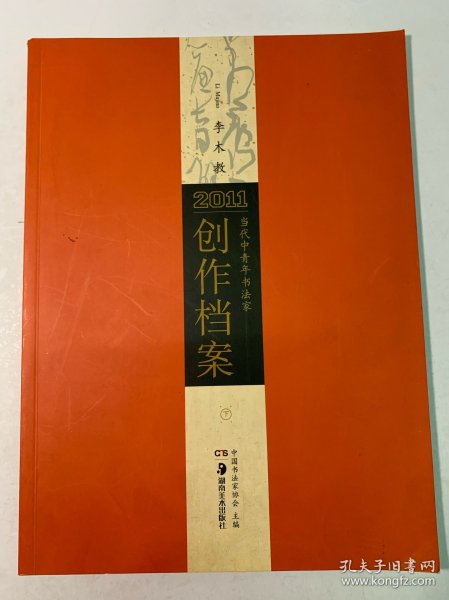 Li Mujiao
李木教
2011
当代中青年书法家
创作档案
下
CTS
湖南美术出版社
中国书法家协会 主编
孔夫子旧书网
www.kongfz.com